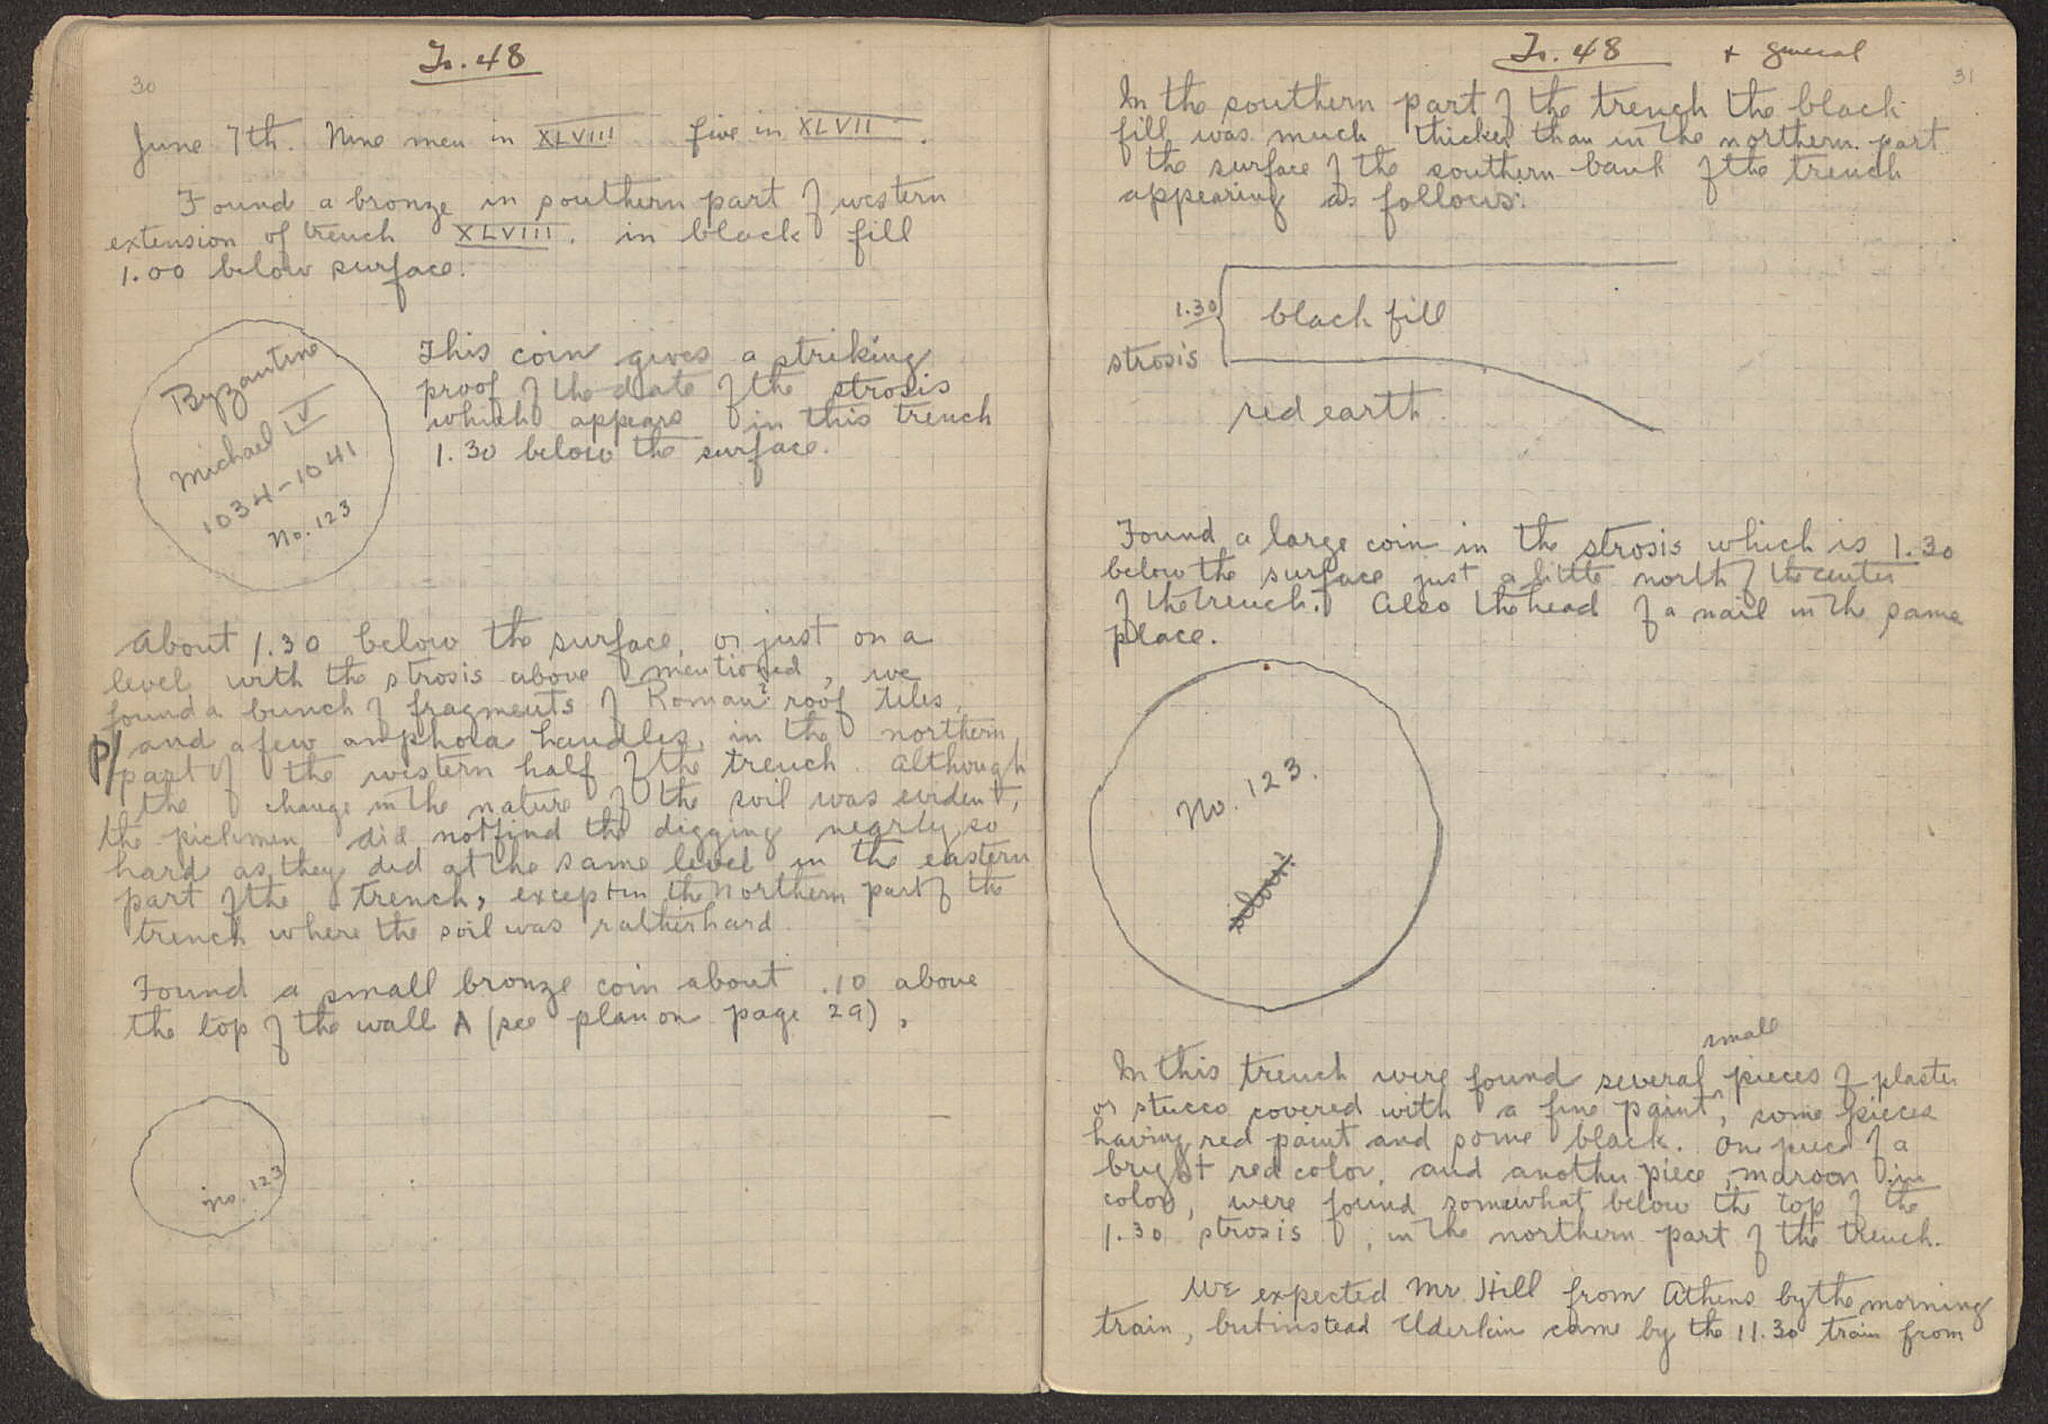 Tr. 48
30
June 7th. Nine men in XLVIII five in XLVII.
Found a bronze in southern part of western
extension of trench XLVIII. in black fill
1.00 below surface.
Byzantine
Michael IV
1034-1041
No. 123
This coin gives a striking
proof of the date of the strosis
which appears in this trench
1.30 below the surface.
About 1.30 below the surface, or just on a
level with the strosis above mentioned, we
found a bunch of fragments of Roman? roof tiles,
P/ and a few amphora handles, in the northern
part of the western half of the trench. Although
the change in the nature of the soil was evident,
the pickmen did not find the digging nearly so
hard as they did at the same level in the eastern
part of the trench, except in the northern part of the
trench where the soil was rather hard.
Found a small bronze coin about .10 above
the top of the wall A (see plan on page 29),
No. 123
Tr. 48 + general
31
In the southern part of the trench the black
fill was much thicker than in the northern part
the surface of the southern bank of the trench
appearing as follows:
1.30 black fill
strosis
red earth.
Found a large coin in the strosis which is 1.30
below the surface just a little north of the center
of the trench. Also the head of a nail in the same
place.
No. 123.
silver?
small
In this trench were found several ^ pieces of plaster
or stucco covered with a fine paint, some pieces
having red paint and some black. One piece of a
bright red color, and another piece, maroon in
color, were found somewhat below the top of the
1.30 strosis, in the northern part of the trench.
We expected Mr. Hill from Athens by the morning
train, but instead Elderkin came by the 11.30 train from